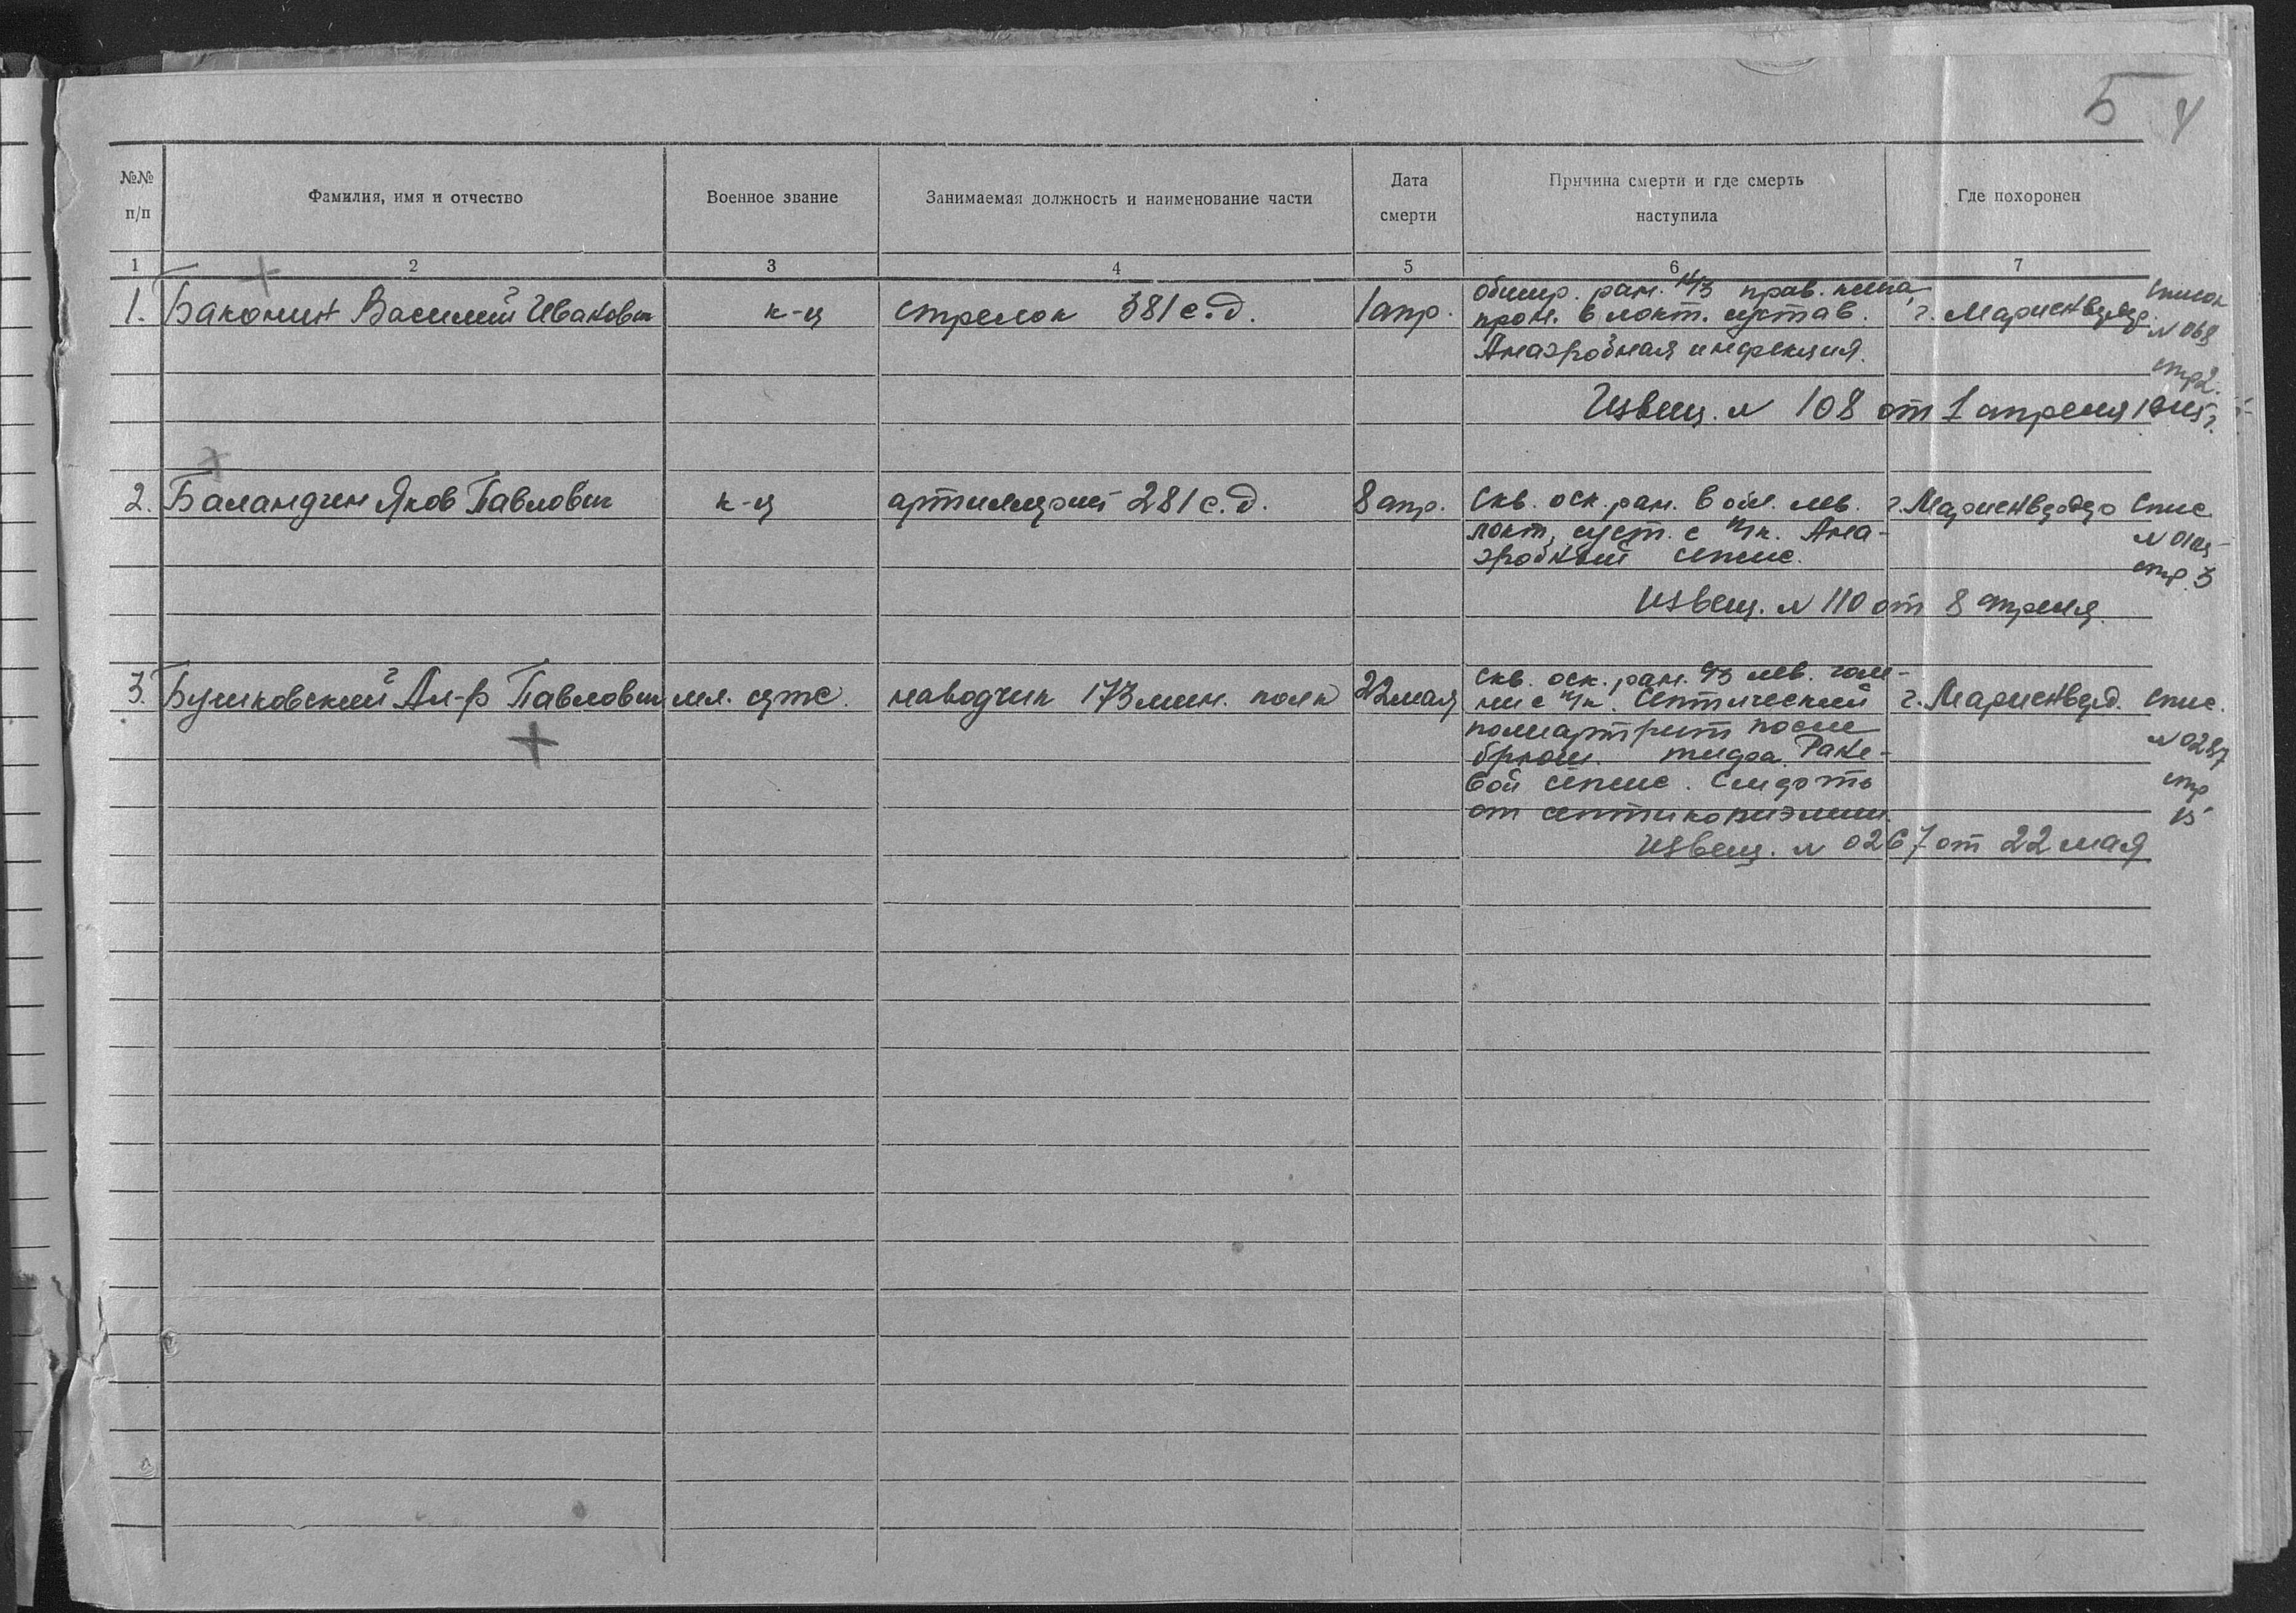 Б 4
№№ п/п
Фамилия, имя и отчество
Военное звание
Занимаемая должность и наименование части
Дата смерти
Причина смерти и где смерть наступила
Где похоронен
1 2 3 4 5 6 7
1. Баконин Василий Иванович к-ц стрелок 381 с.д. 1 апр.
обшир. ран. н/3 прав. плеча,
прон. в локт. сустав.
Анаэробная инфекция.
г. Мариенвердер.
Список
N 068
стр 2.
Извещ. N 108 от 1 апреля 1945 г.
2. Баландин Яков Павлович к-ц артиллерист 281 с.д. 8 апр.
Скв. оск. ран. в обл. лев.
локт. суст. с п/к. Анаэробный сепсис.
г. Мариенвердер
Спис.
N 0105
стр. 3
Извещ. N 110 от 8 апреля.
3. Бушковский Ал-р Павлович мл. серж. наводчик 173 мин. полк 22 мая
Скв. оск. ран. с/3 лев. голени с п/к. Септический
полиартрит после
брюш. тифа. Раневой сепсис. Смерть
от септикопиэмии.
г. Мариенверд.
Спис.
N 0287
стр
15
Извещ. N 0267 от 22 мая